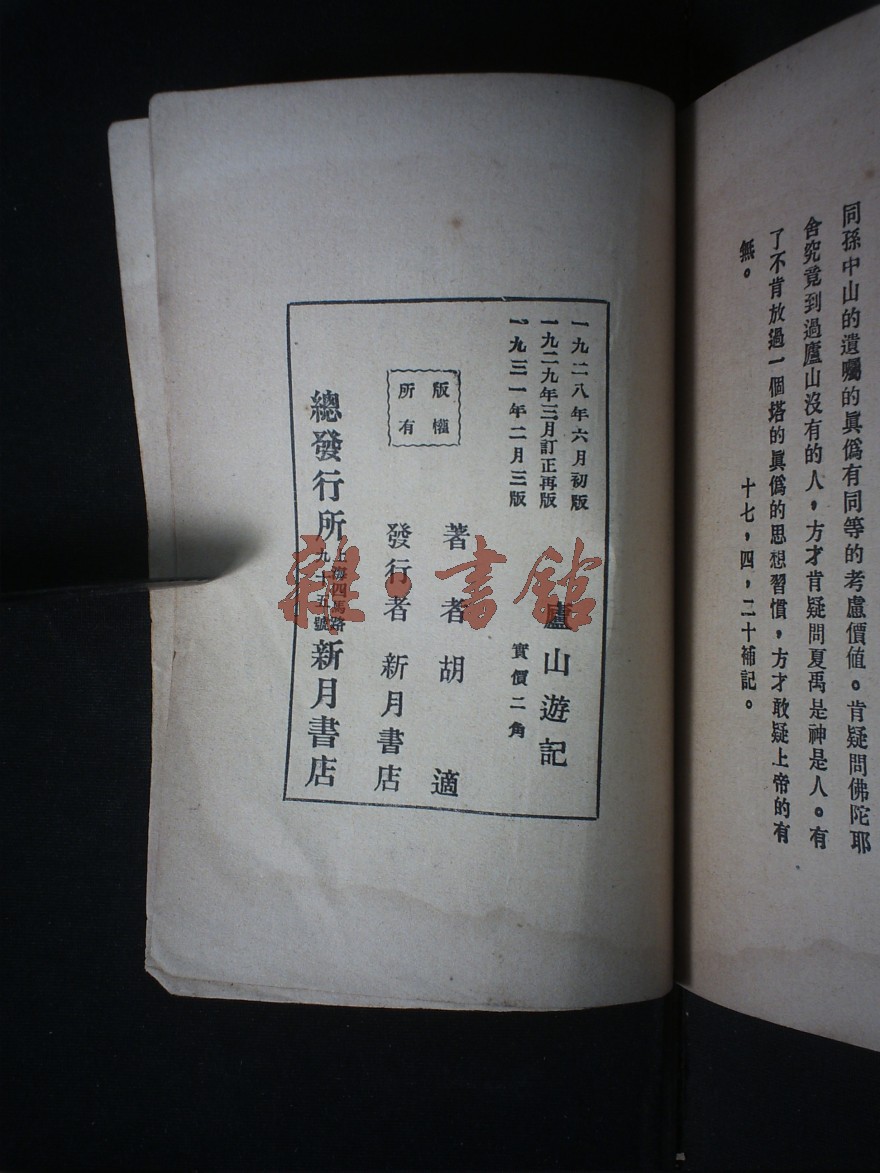 同孫中山的遺囑的眞僞有同等的考慮價值。肯疑問佛陀耶
舍究竟到過廬山沒有的人，方才肯疑問夏禹是神是人。有
了不肯放過一個塔的眞僞的思想習慣，方才敢疑上帝的有
無。
十七，四，二十補記。
一九二八年六月初版
一九二九年三月訂正再版
一九三一年二月三版
廬山遊記
實價二角
著者胡適
版權
所有
發行者新月書店
總發行所
上海四馬路
九十五號
新月書店
雜·書館